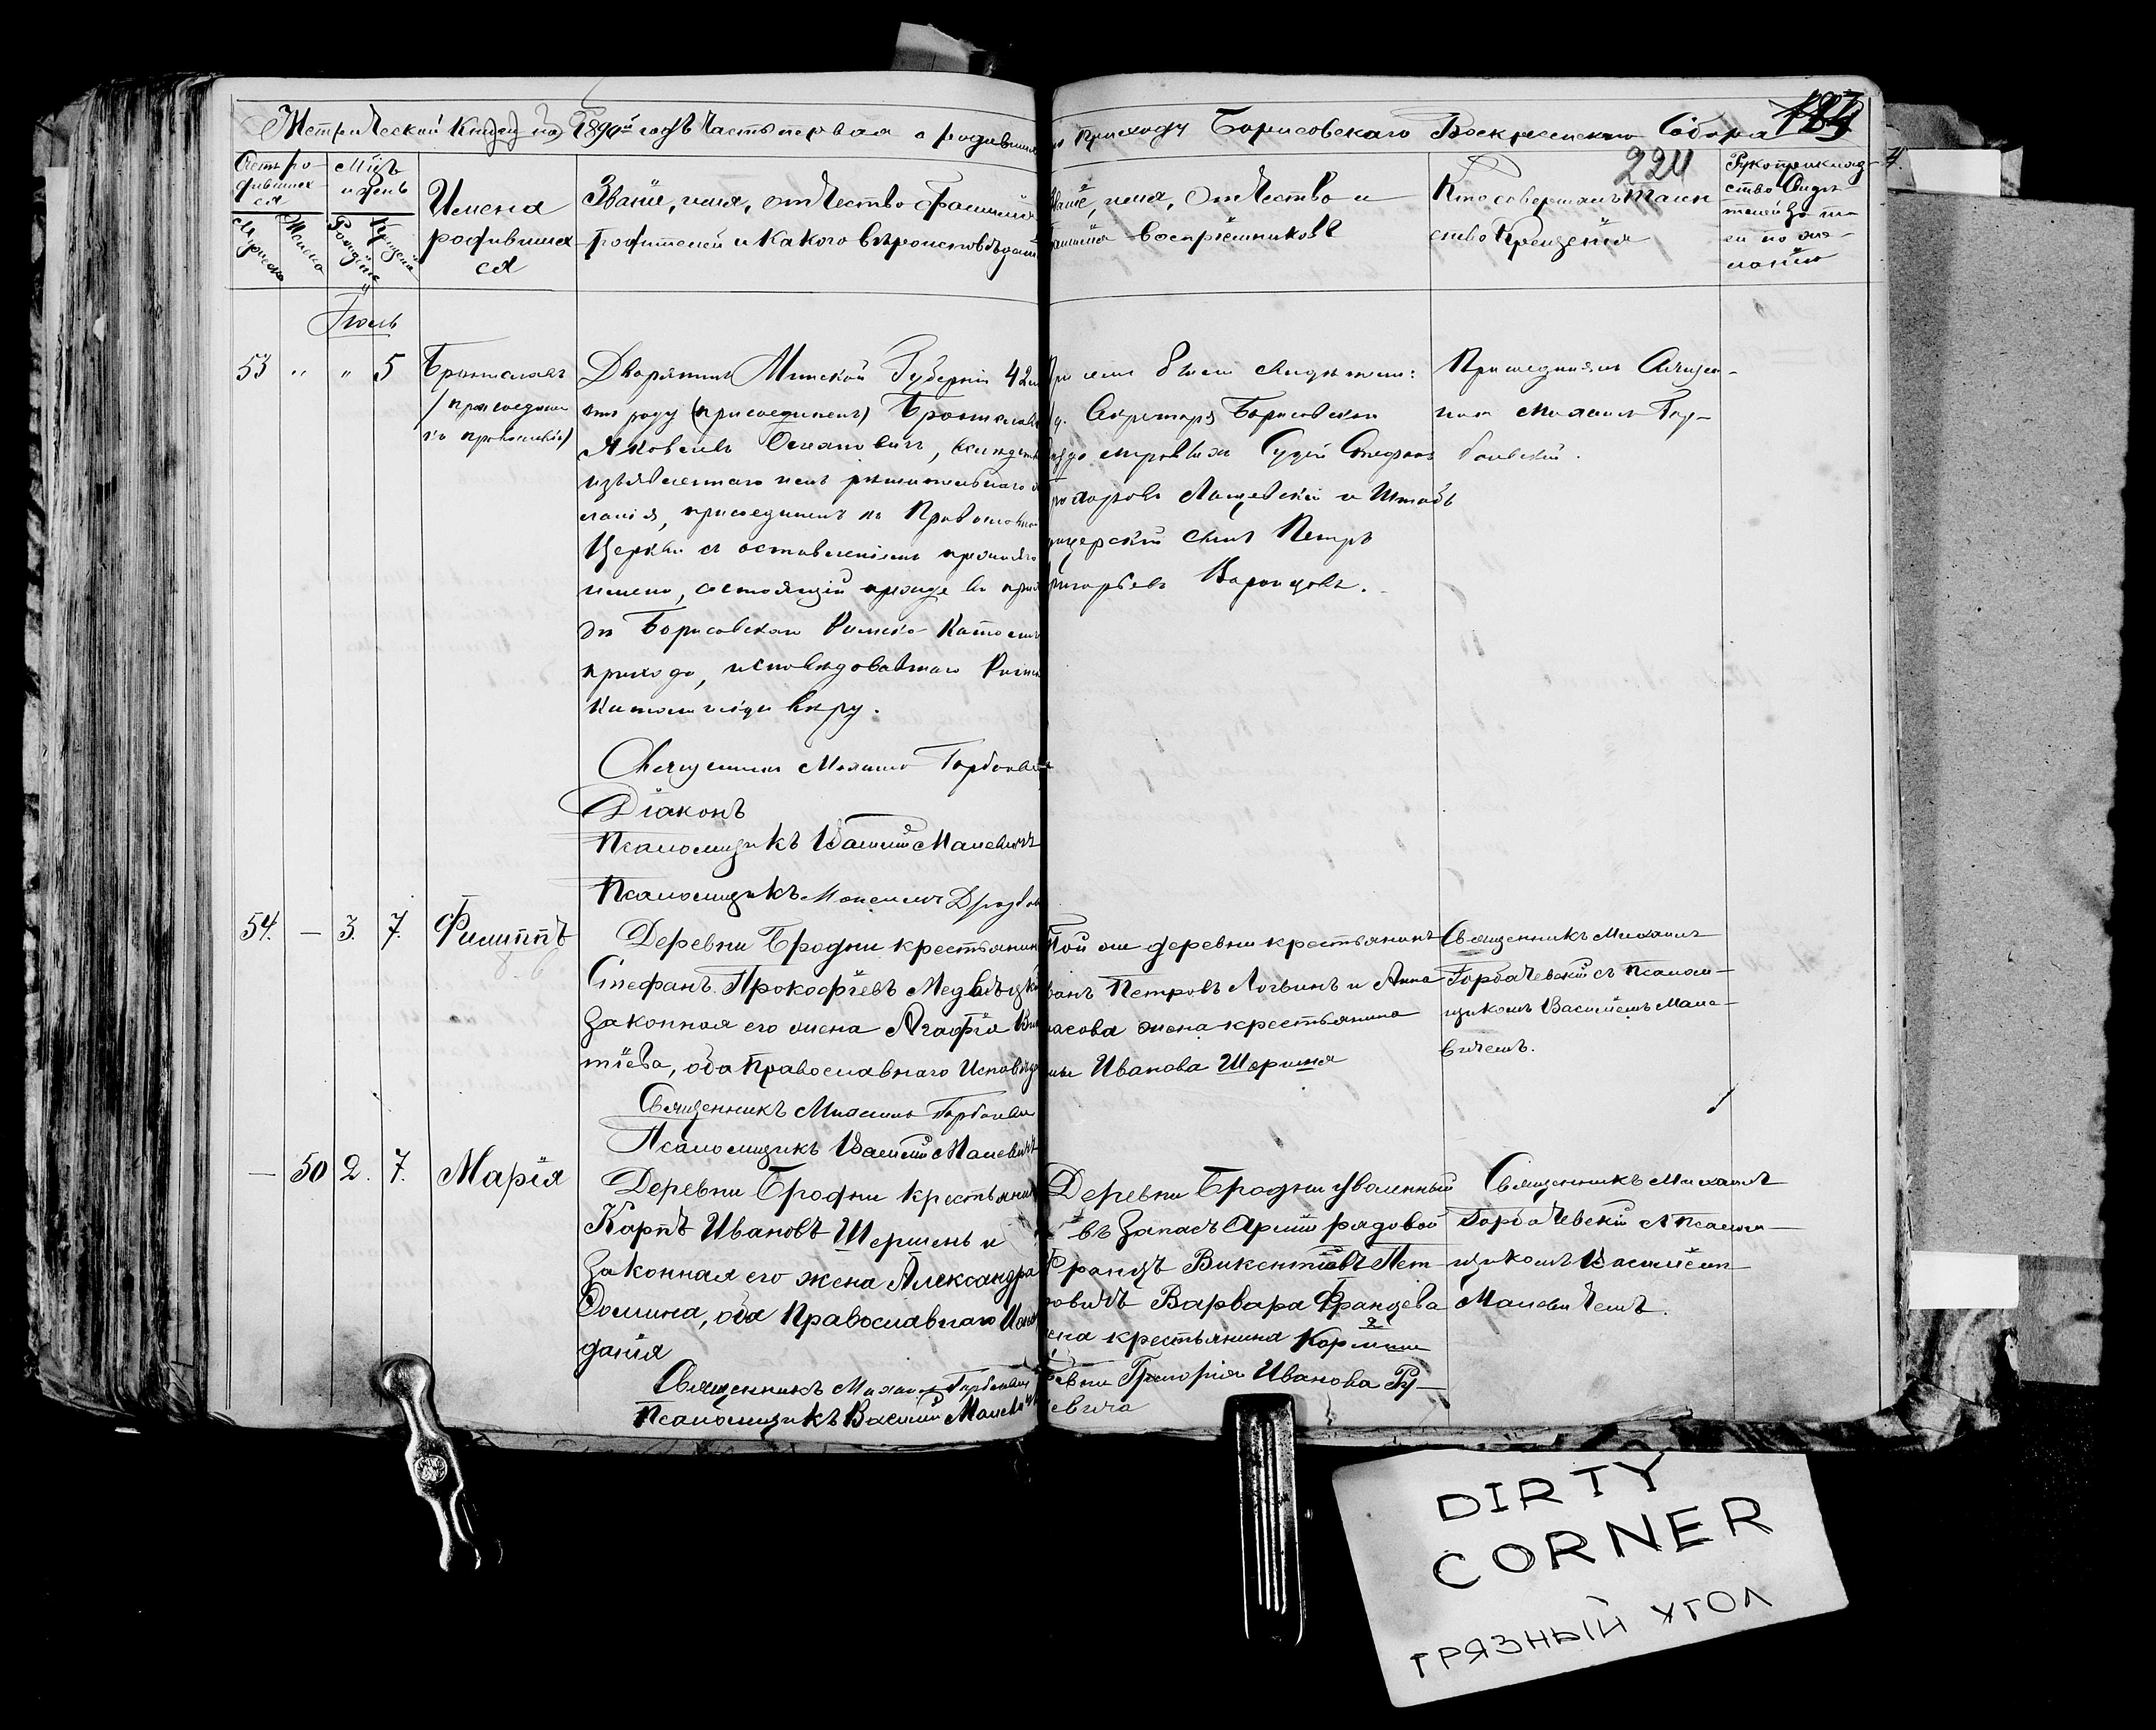 Метрической книги на 1890й годъ Часть первая о родившихся
по приходу Борисовскаго Воскресенскаго Собора
183
224
Счетъ ро-
дивших-
ся
Мцъ
и День
Имена
родивших
ся
Званіе, имя, отчество Фамилія
родителей и какого вѣроисповѣданія
Мужеска
Женска
Рожденія
Крещенія
Званіе, имя, отчество и
фамилія воспріемниковъ
Кто совершалъ таин
ство Крещенія
Рукоприклад-
ство Свидѣ-
телей за пи-
си по же-
ланію
Іюль
53 " " 5
Брониславъ
(присоедин
къ православію)
Дворянинъ Минской Губерніи 42
году (присоединенъ) Брониславъ
Яковлевъ
изъявленнаго имъ рѣшительнаго
желанія, присоединенъ къ Православной
Церкви съ оставленіемъ прежняго
имени, состоящій прежде въ
Борисовскаго Римско-Католич
прихода, исповѣдовавшаго Римско
Католическую вѣру.
Священникъ Михаилъ Горбачевскій
Діаконъ
Псаломщикъ Василій Малевичъ
Псаломщикъ Дроздов
При семъ были свидѣтели:
Секретарь Борисовскаго
мировыхъ Судей Стефанъ
и Штабъ
офицерскій сынъ Петръ
Григорьевъ Воронцовъ.
Присоединялъ Священ-
никъ Михаилъ Гор-
бачевскій.
54. — 3. 7. Филиппъ
Деревни Бродни крестьянинъ
Стефанъ Прокофіевъ Медвѣцкій
законная его жена Агафія
тіева, оба Православнаго Исповѣда
Священникъ Михаилъ Горбачевскій
Псаломщикъ Василій Малевичъ
Той же деревни крестьянинъ
Иванъ Петровъ Логвинъ и Анна
жена крестьянина
Иванова Шершня
Священникъ Михаилъ
Горбачевскій съ Псалом-
щикомъ Василіемъ Мале-
вичемъ.
— 50 2. 7. Марія
Деревни Бродни крестьянинъ
Карпъ Ивановъ Шершень и
законная его жена Александра
Фомина, оба Православнаго Испов
данія
Священникъ Михаилъ Горбачевскій
Псаломщикъ Василій Малевичъ
Деревни Бродни уволенный
въ запасъ Арміи рядовой
Францъ Викентіевъ Пет-
ровичъ Варвара Францева
жена крестьянина
деревни Григорія Иванова Ру-
евича
Священникъ Михаилъ
Горбачевскій с Псалом-
щикомъ Василіемъ
Малевичемъ.
DIRTY
CORNER
ГРЯЗНЫЙ УГОЛ